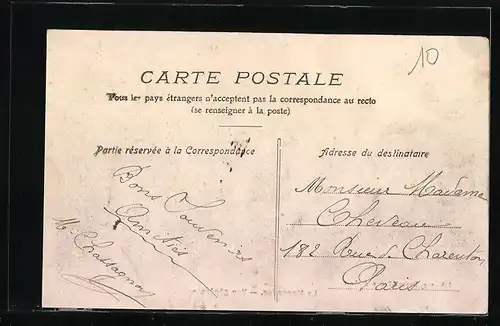 10
CARTE POSTALE
Tous les pays étrangers n'acceptent pas la correspondance au recto
(se renseigner à la poste)
Partie réservée à la Correspondance
Bons Souvenirs
Amitiés
M. Chassagnon
Adresse du destinataire
Monsieur Madame
Chevreau
182 Rue de Charenton
Paris